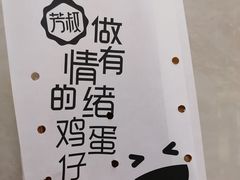 芳叔
做有情绪的鸡蛋仔